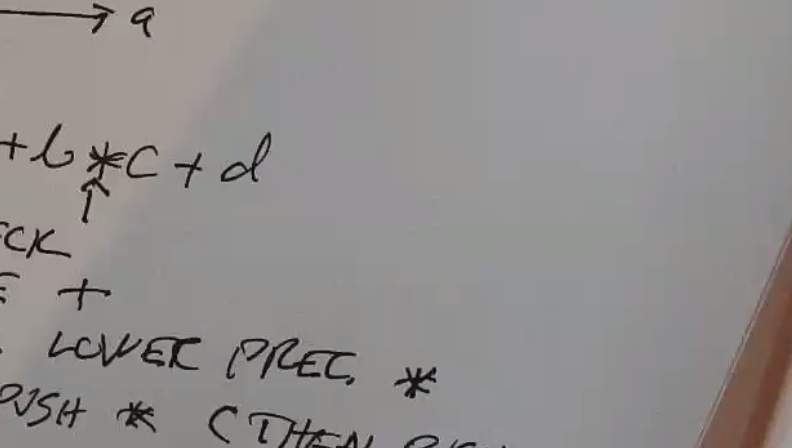 → a
+b*c+d
↑
ECK
E +
LOWER PREC. *
PUSH * (THEN